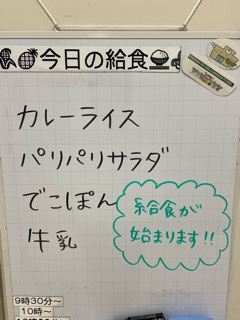 今日の給食
カレーライス
パリパリサラダ
でこぽん
牛乳
給食が
始まります!!
9時30分～
10時～